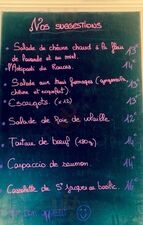 Nos suggestions
- Salade de chèvre chaud à la fleur 13€
de lavande et au miel.
- L'Antipasti du Rancas. 14€
- Salade aux trois fromages (gorgonzola,
chèvre et roquefort) 13€
- Escargots. (x12) 13€
- Salade de Foie de volaille. 12€
- Tartare de bœuf (180g) 14€
- Carpaccio de saumon. 14€
- Cassolette de St Jacques au basilic. 16€